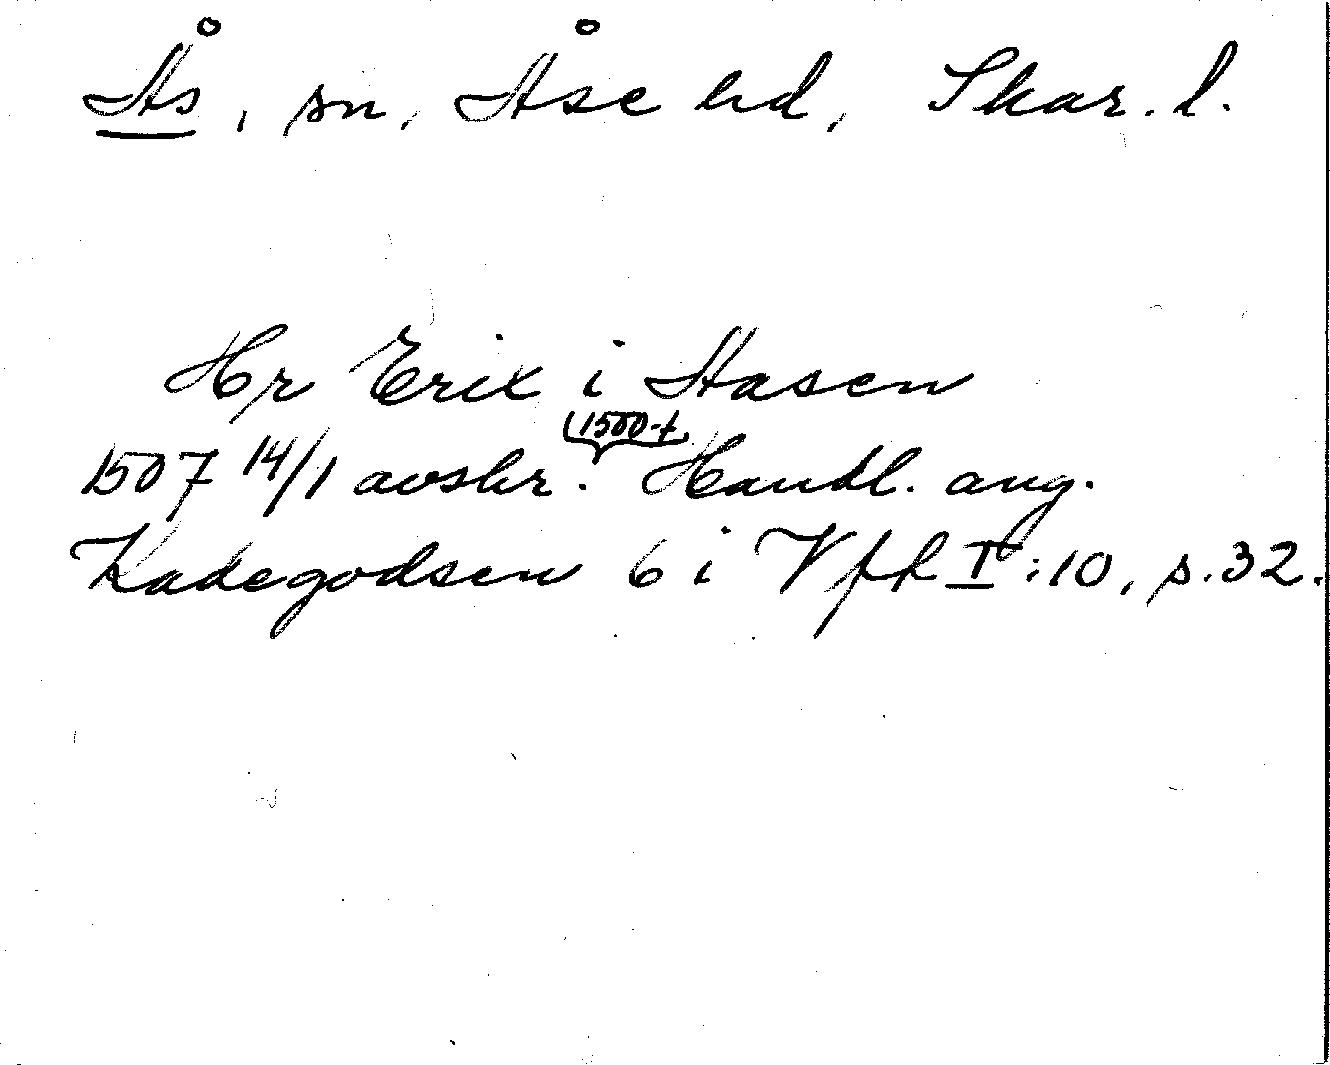 Ås, sn, Åse hd, Skar. l.
Hr Erik i Aasen
1507 14/1 avskr. (1500-t) Handl. ang.
Kadegodsen 6 i Vfft I:10, s. 32.